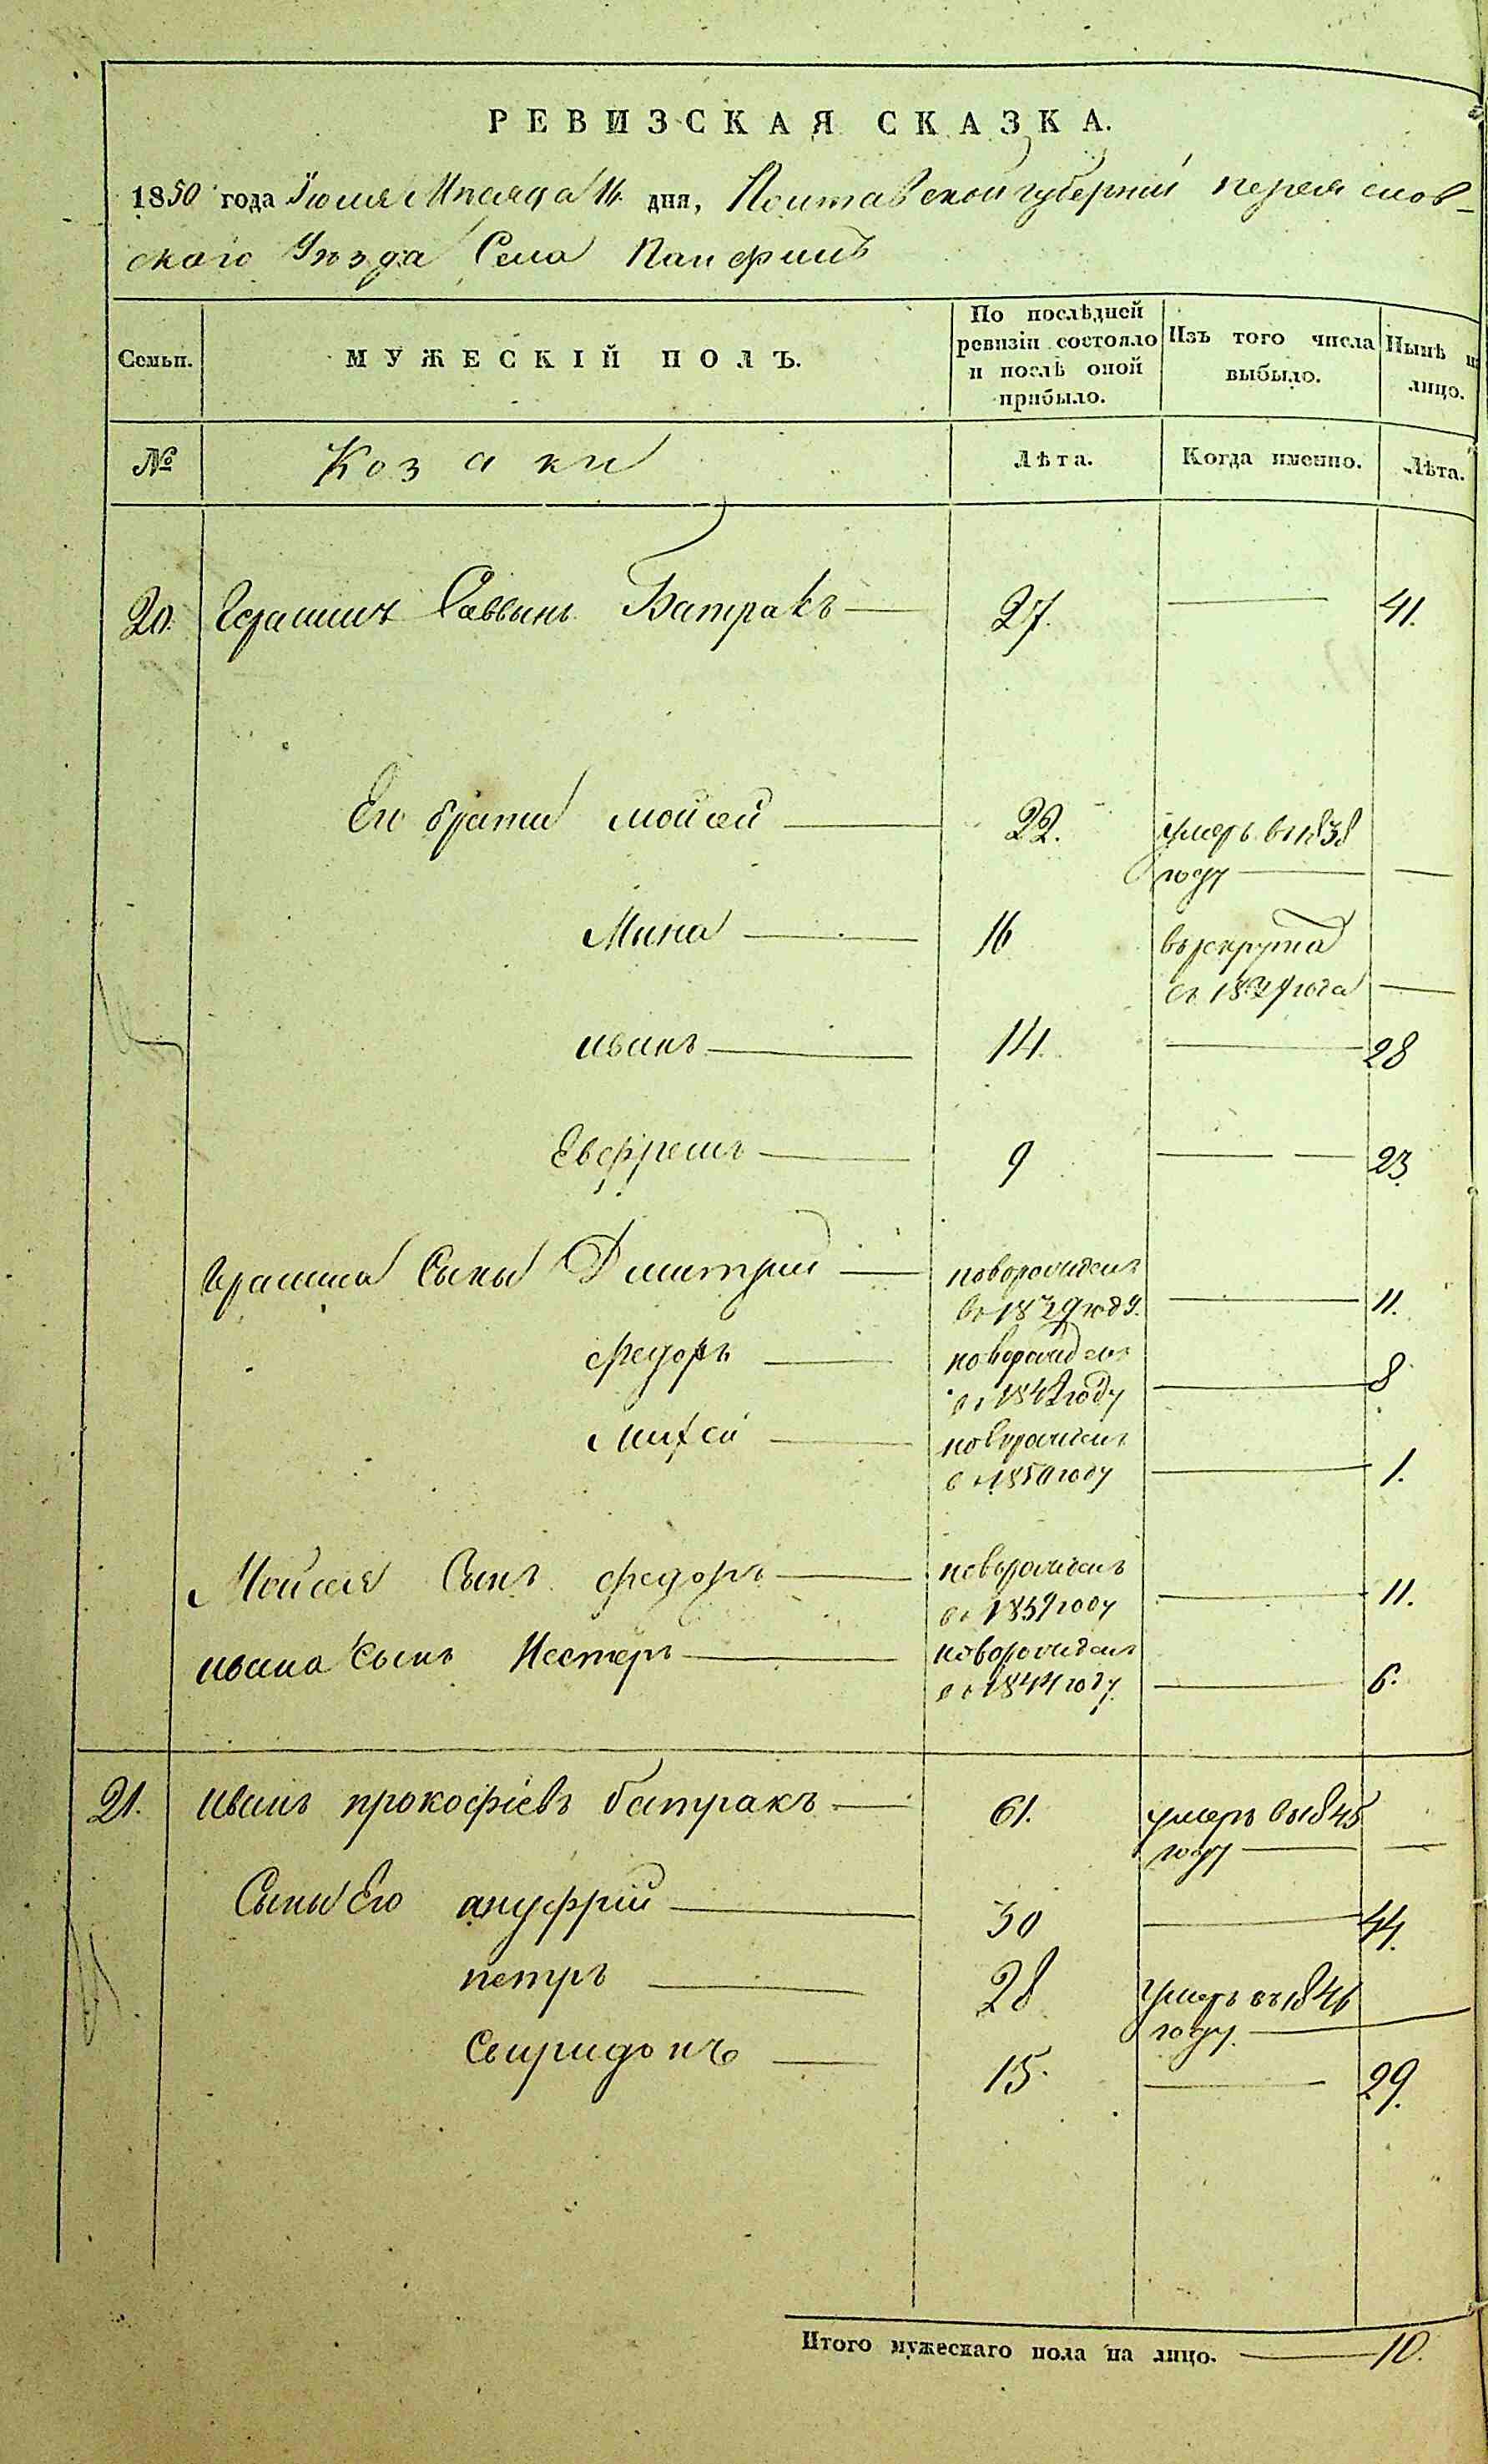 РЕВИЗСКАЯ СКАЗКА.
1850 года Іюля Мѣсяца 16 дня, Полтавской губерніи переяслов-
ского Уѣзда Села Панфилъ
Семьи. МУЖЕСКІЙ ПОЛЪ. По послѣдней ревизіи состояло и послѣ оной прибыло. Изъ того числа выбыло. Нынѣ на лицо.
№ Козаки Лѣта. Когда именно. Лѣта.
20. Герасимъ Саввинъ Батракъ 27. 41.
Его братья мойсей 22. умеръ въ 1838
году
Мина 16 въ рекрута
съ 1839 года
иванъ 14. 28
Евфремъ 9 23.
Герасима Сыны Дмитрий новорожденъ
въ 1839 году. 11.
федоръ новорожденъ
въ 1842 году 8
Михей новорожденъ
въ 1850 году 1.
Мойсея Сынъ федоръ новорожденъ
въ 1839 году 11.
ивана Сынъ Нестеръ новорожденъ
въ 1844 году 6.
21. иванъ прокофіевъ батракъ 61. умеръ въ 1845
году
Сыны Его ануфрій 30 44.
петръ 28 умеръ въ 1846
году.
Спиридонъ 15. 29.
Итого мужескаго пола на лицо. 10.